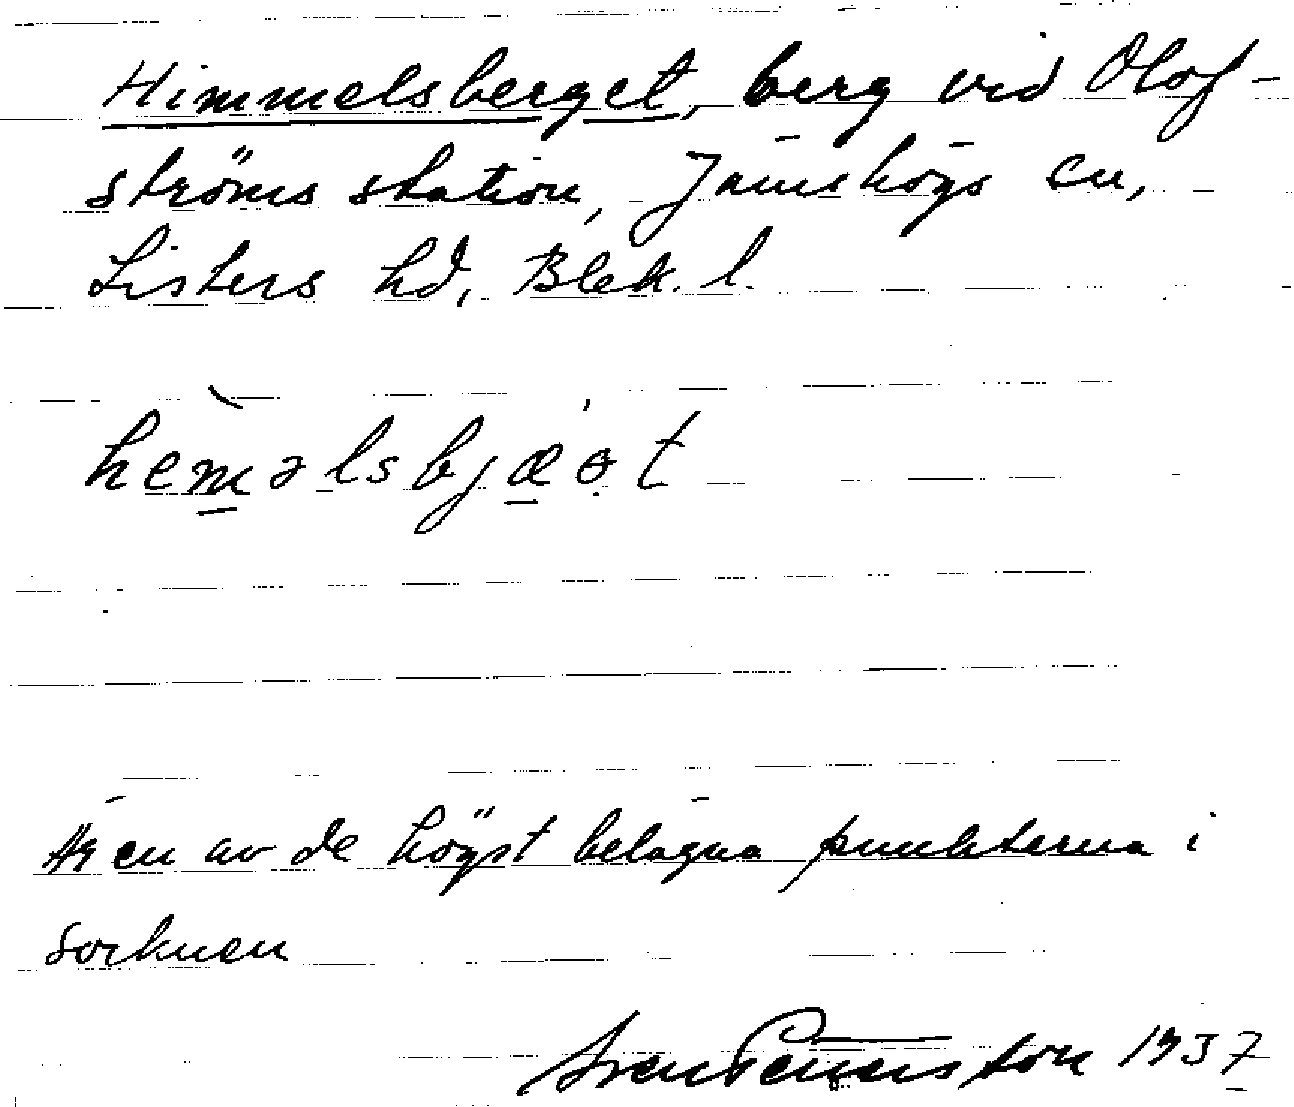 Himmelsberget, berg vid Olof-
ströms station, Jämshögs sn,
Listers hd, Blek. l.
hèməlsbjæ̱ət
Är en av de högst belägna punkterna i
socknen
Sven Benson 1937